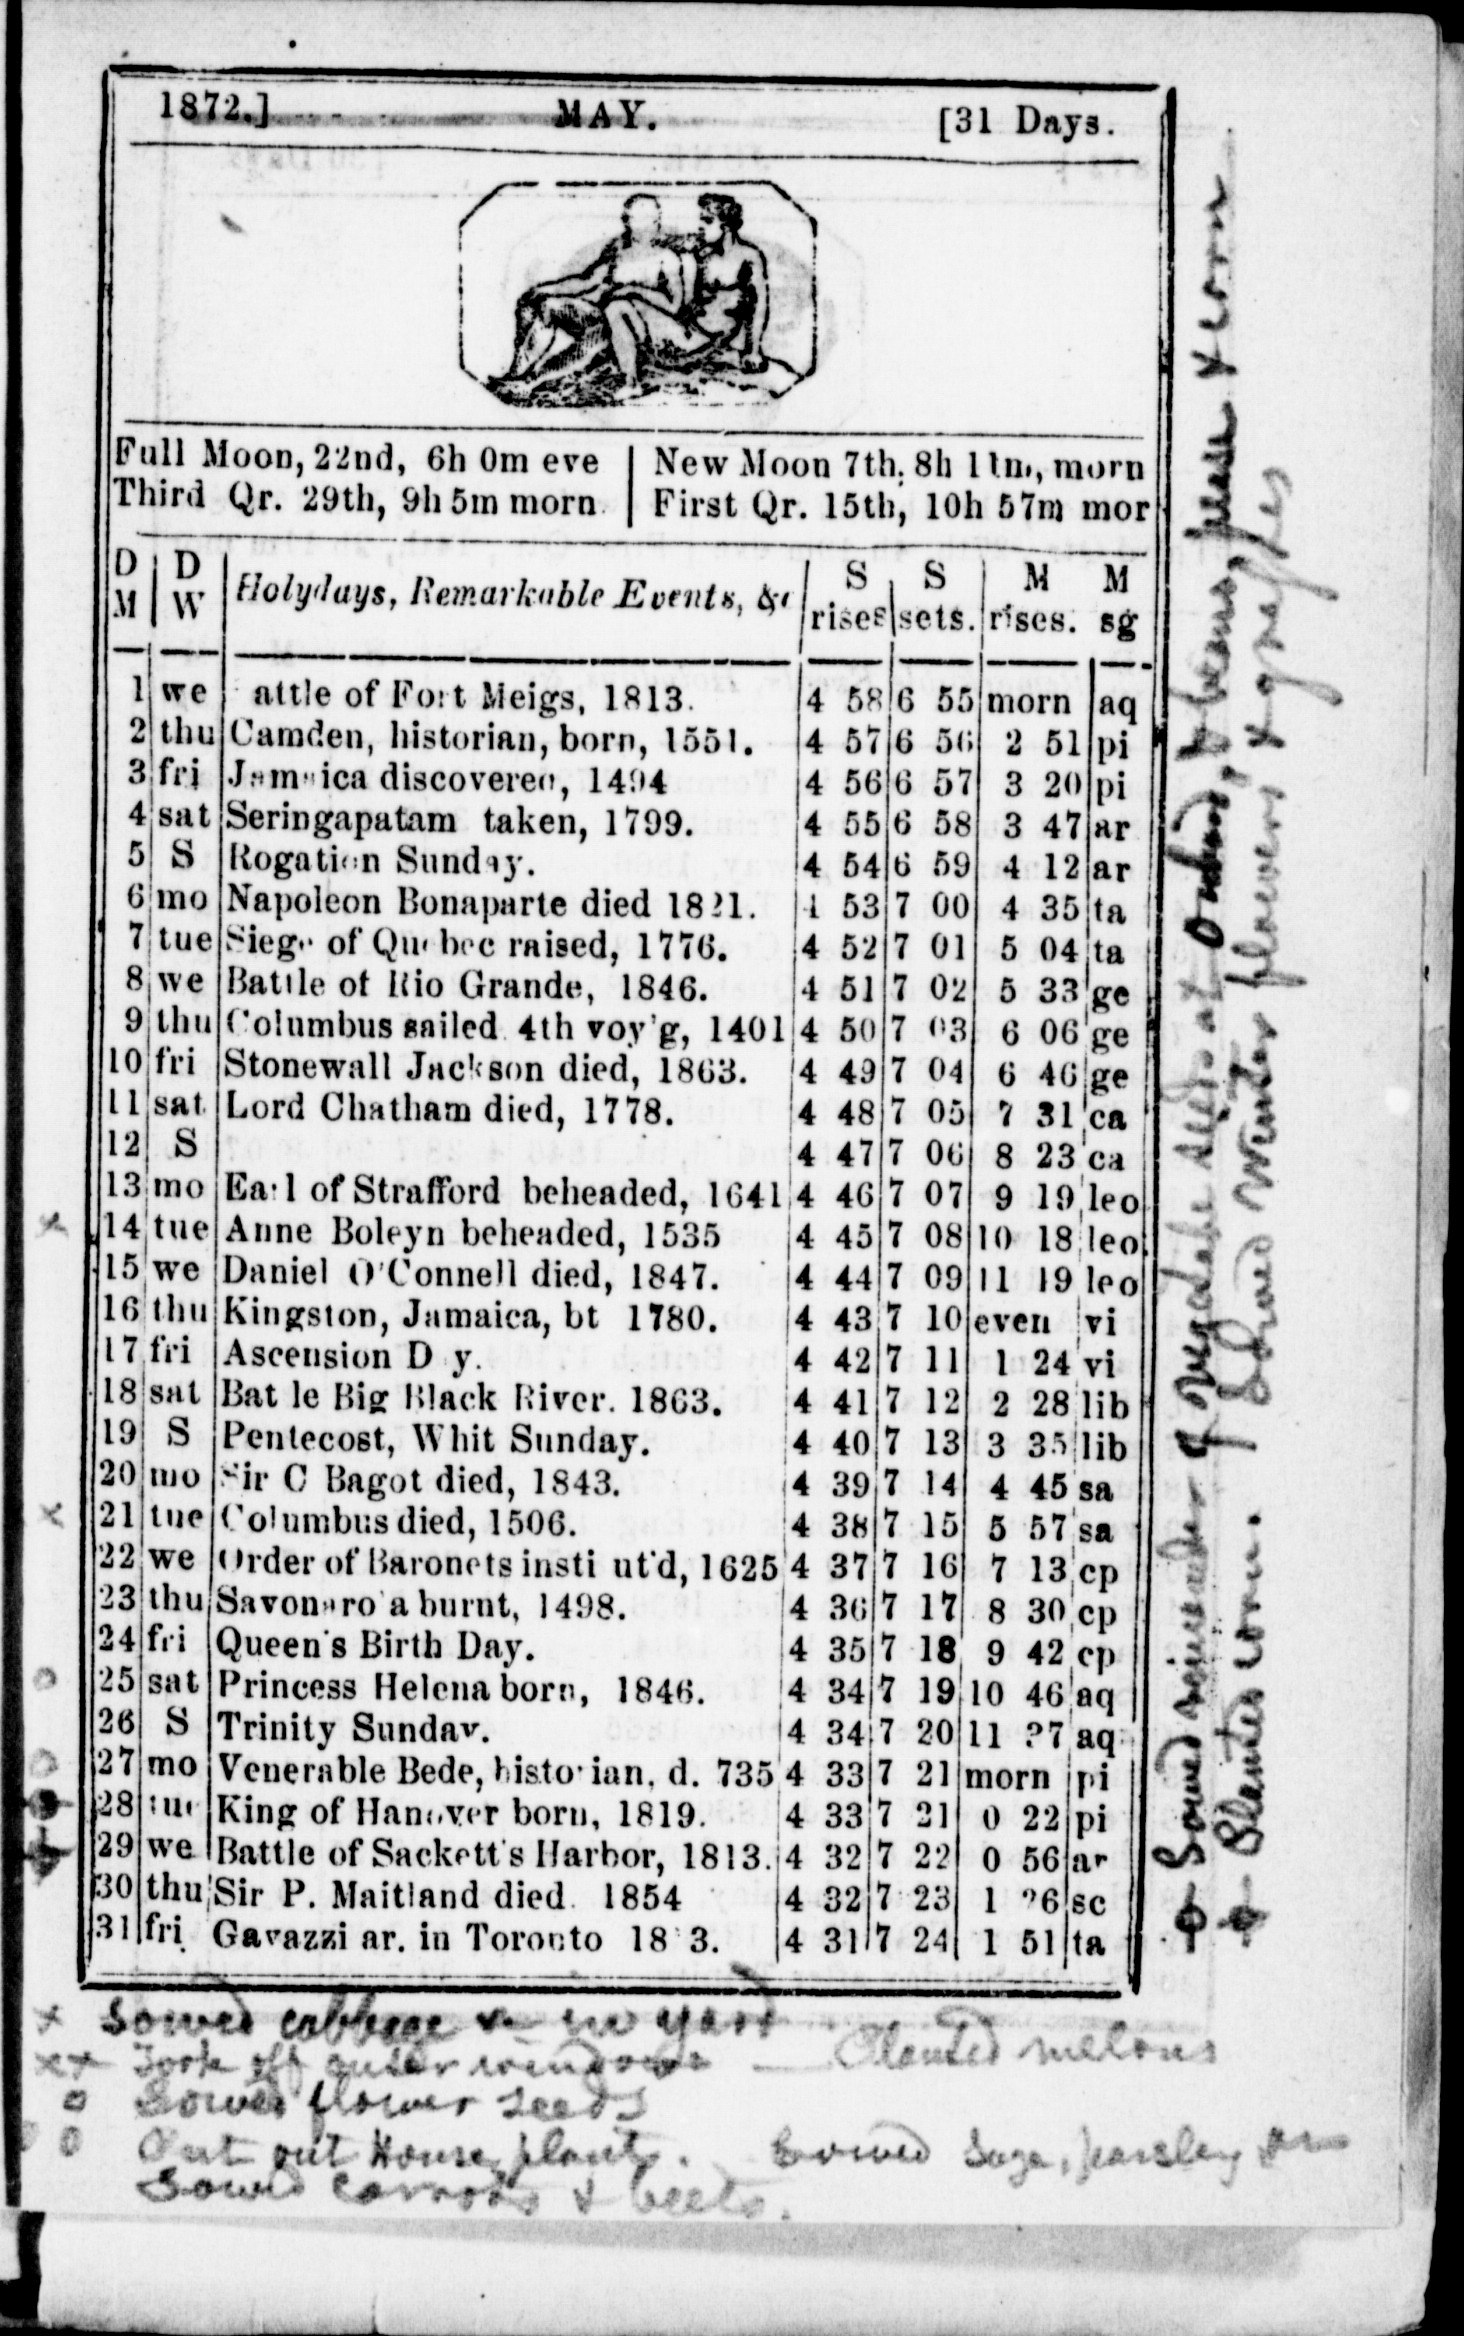 1872.] MAY. [31 Days.
Full Moon, 22nd, 6h 0m eve | New Moon 7th, 8h 11m, morn
Third Qr. 29th, 9h 5m morn | First Qr. 15th, 10h 57m mor
D M | D W | Holydays, Remarkable Events, &c | S rises | S sets. | M rises. | M sg
1 we attle of Fort Meigs, 1813. 4 58 6 55 morn aq
2 thu Camden, historian, born, 1551. 4 57 6 56 2 51 pi
3 fri Jamaica discovered, 1494 4 56 6 57 3 20 pi
4 sat Seringapatam taken, 1799. 4 55 6 58 3 47 ar
5 S Rogation Sunday. 4 54 6 59 4 12 ar
6 mo Napoleon Bonaparte died 1821. 4 53 7 00 4 35 ta
7 tue Siege of Quebec raised, 1776. 4 52 7 01 5 04 ta
8 we Battle of Rio Grande, 1846. 4 51 7 02 5 33 ge
9 thu Columbus sailed 4th voy'g, 1401 4 50 7 03 6 06 ge
10 fri Stonewall Jackson died, 1863. 4 49 7 04 6 46 ge
11 sat Lord Chatham died, 1778. 4 48 7 05 7 31 ca
12 S 4 47 7 06 8 23 ca
13 mo Earl of Strafford beheaded, 1641 4 46 7 07 9 19 leo
x 14 tue Anne Boleyn beheaded, 1535 4 45 7 08 10 18 leo
15 we Daniel O'Connell died, 1847. 4 44 7 09 11 19 leo
16 thu Kingston, Jamaica, bt 1780. 4 43 7 10 even vi
17 fri Ascension D y. 4 42 7 11 1 24 vi
18 sat Bat le Big Black River. 1863. 4 41 7 12 2 28 lib
19 S Pentecost, Whit Sunday. 4 40 7 13 3 35 lib
20 mo Sir C Bagot died, 1843. 4 39 7 14 4 45 sa
x 21 tue Columbus died, 1506. 4 38 7 15 5 57 sa
22 we Order of Baronets insti ut'd, 1625 4 37 7 16 7 13 cp
23 thu Savonaro a burnt, 1498. 4 36 7 17 8 30 cp
24 fri Queen's Birth Day. 4 35 7 18 9 42 cp
o 25 sat Princess Helena born, 1846. 4 34 7 19 10 46 aq
26 S Trinity Sunday. 4 34 7 20 11 27 aq
o 27 mo Venerable Bede, historian, d. 735 4 33 7 21 morn pi
28 tue King of Hanover born, 1819. 4 33 7 21 0 22 pi
29 we Battle of Sackett's Harbor, 1813. 4 32 7 22 0 56 ar
30 thu Sir P. Maitland died. 1854 4 32 7 23 1 26 sc
31 fri Gavazzi ar. in Toronto 18 3. 4 31 7 24 1 51 ta
x Sowed cabbage in yard
xx Took off outer windows — Planted melons
o Sowed flower seeds
o o Put out House plants. Sowed Sage, parsley
Sowed carrots & beets.
Sowed remainder of vegetable seeds at beans, peas & corn
Planted corn. winter flowers & grasses